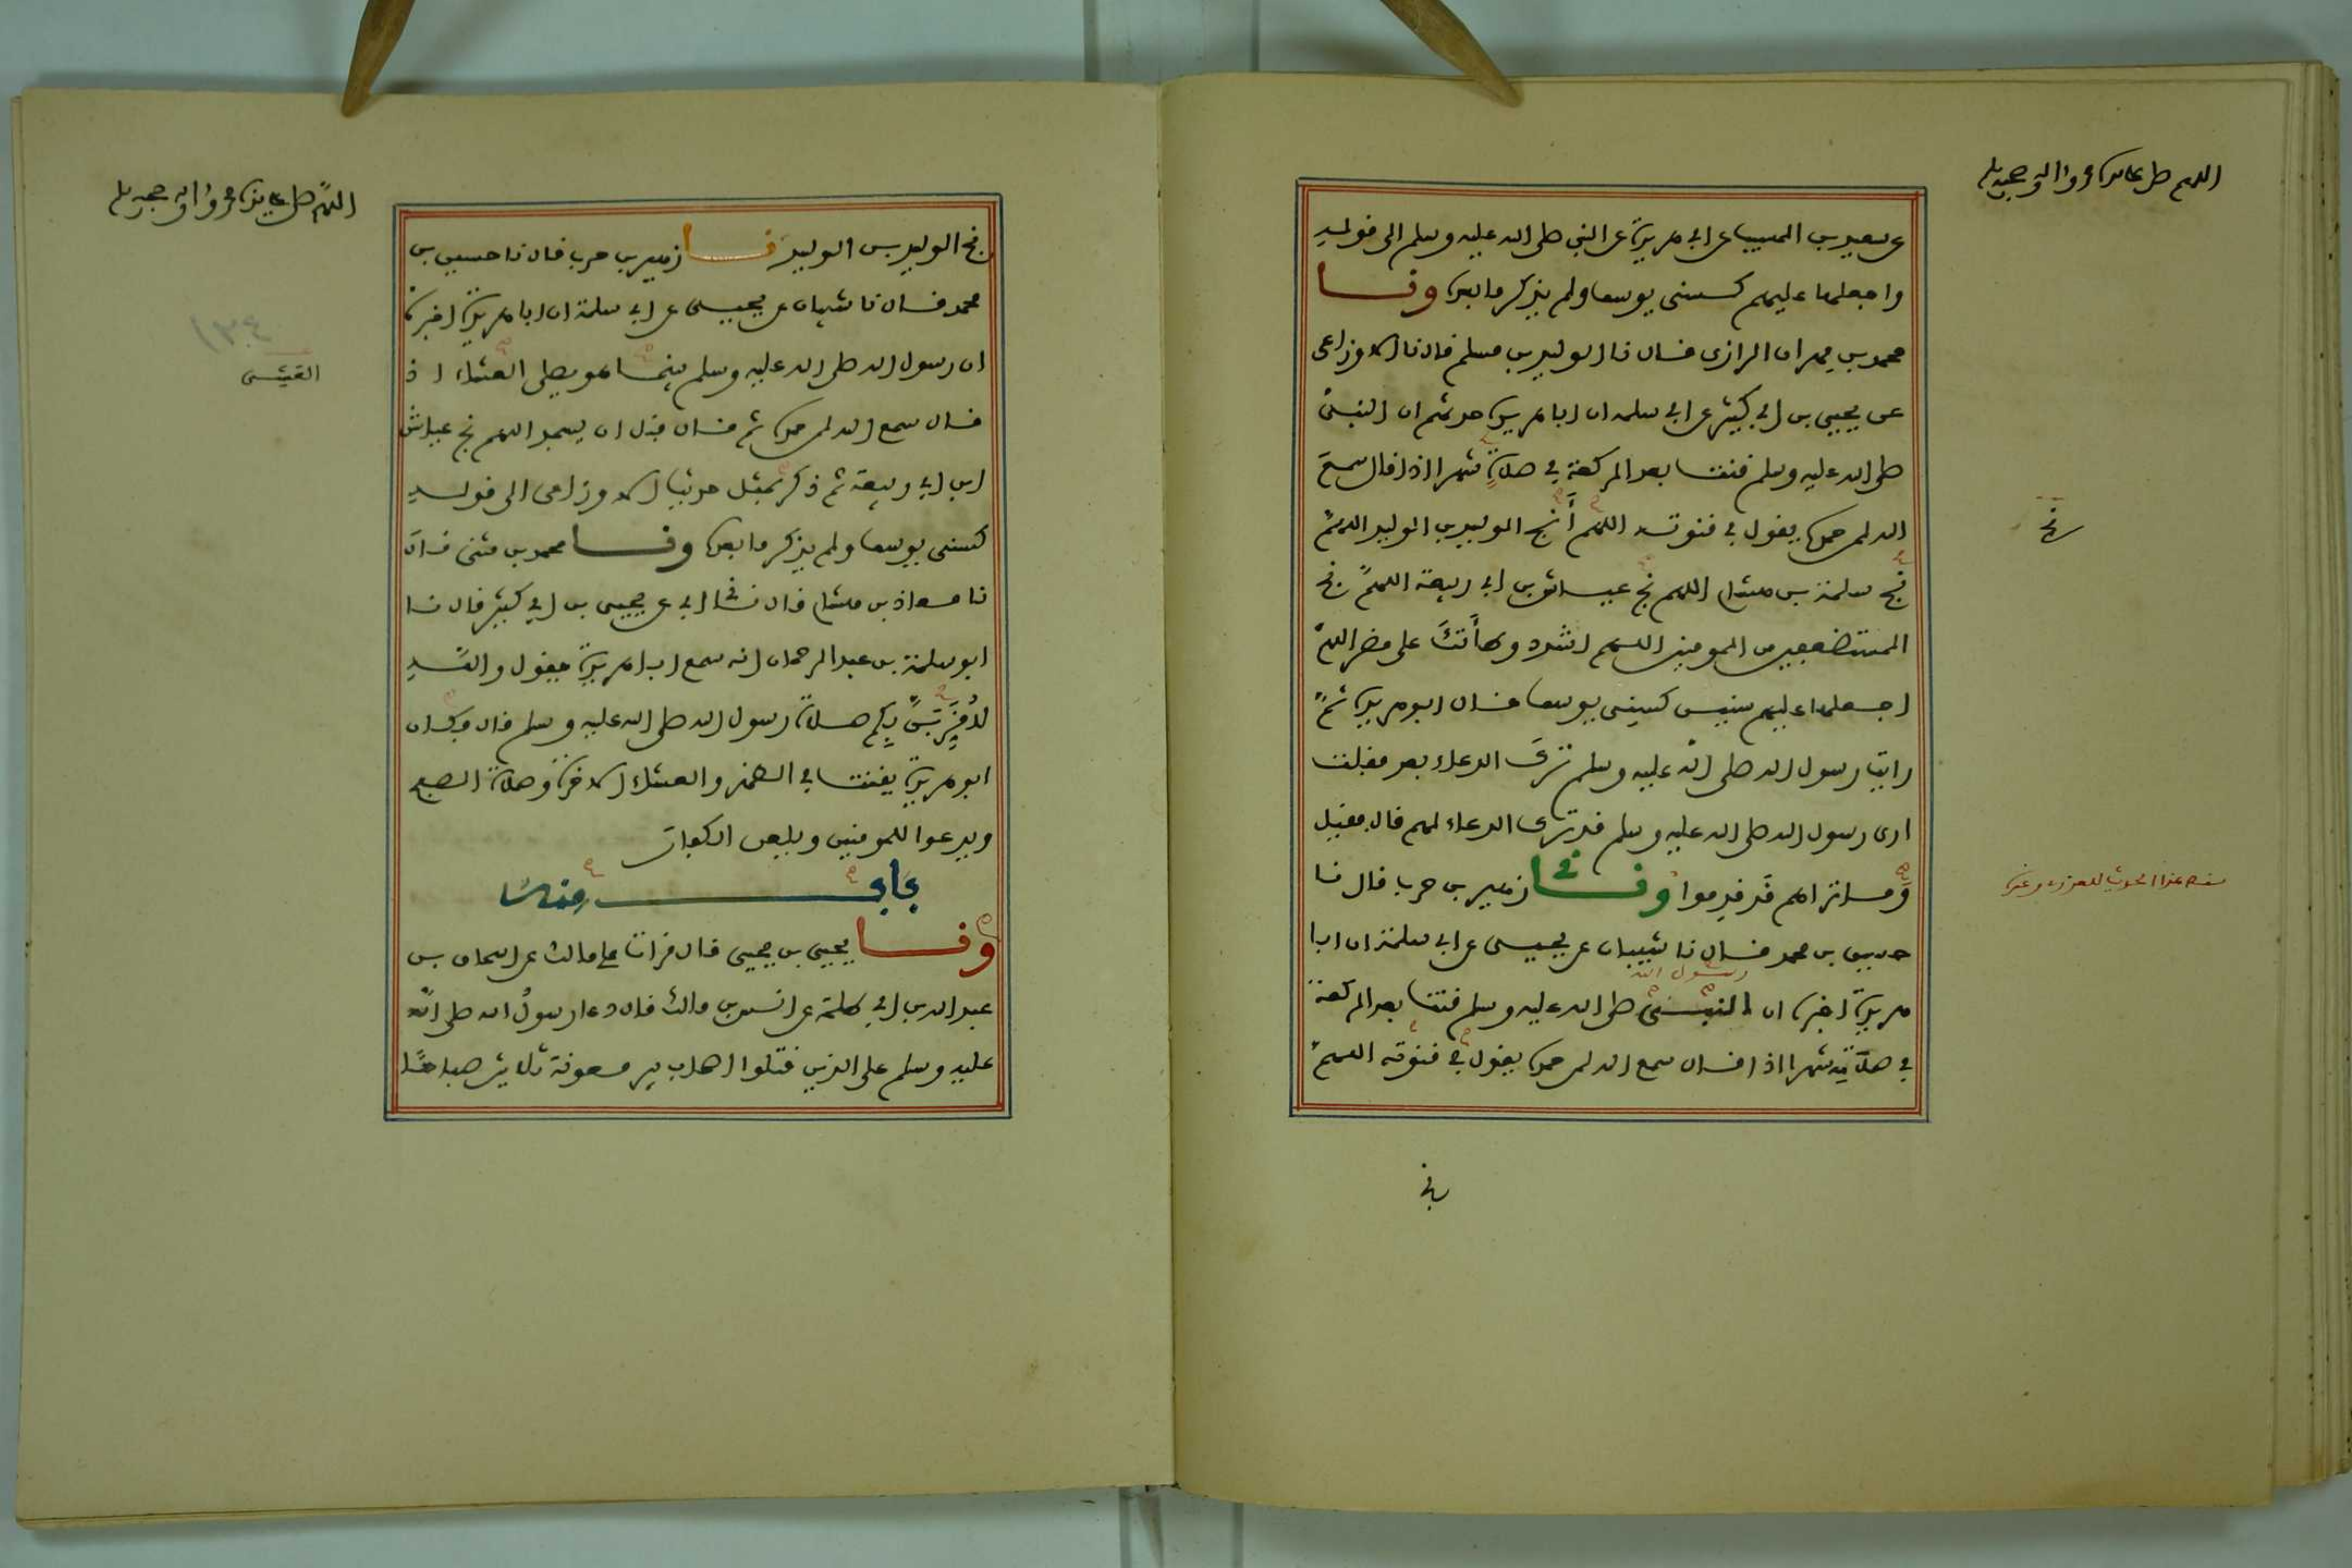 اللهم صل على سيدنا محمد واله وصحبه وسلم
عن سعيد بن المسيب عن ابي هريرة عن النبي صلى الله عليه وسلم الى قوله
واجعلها عليهم كسني يوسف ولم يذكر ما بعده ونا
محمد بن مهران الرازي قال نا الوليد بن مسلم قال نا الاوزاعي
عن يحيى بن ابي كثير عن ابي سلمة ان ابا هريرة حدثهم ان النبي
صلى الله عليه وسلم قنت بعد الركعة في صلاة شهرا اذا قال سمع
الله لمن حمده يقول في قنوته اللهم أنج الوليد بن الوليد اللهم
نج سلمة بن هشام اللهم نج عياش بن ابي ربيعة اللهم نج
المستضعفين من المومنين اللهم اشدد وطأتك على مضر اللهم
اجعلها عليهم سنين كسني يوسف قال ابو هريرة ثم
رايت رسول الله صلى الله عليه وسلم ترك الدعاء بعد فقلت
ارى رسول الله صلى الله عليه وسلم قد ترك الدعاء لهم قال فقيل
وما تراهم قد قدموا وني زهير بن حرب قال نا
حسين بن محمد قال نا شيبان عن يحيى عن ابي سلمة ان ابا
رسول الله
هريرة اخبره ان النبي صلى الله عليه وسلم قنت بعد الركعة
في صلاته شهرا اذا قال سمع الله لمن حمده يقول في قنوته اللهم
نج
اللهم صل على سيدنا محمد واله وصحبه وسلم
نج الوليد بن الوليد نا زهير بن حرب قال نا حسين بن
محمد قال نا شيبان عن يحيى عن ابي سلمة ان ابا هريرة اخبره
ان رسول الله صلى الله عليه وسلم بينما هو يصلي العشاء اذ
العشي
قال سمع الله لمن حمده ثم قال قبل ان يسجد اللهم نج عياش
ابن ابي ربيعة ثم ذكر بمثل حديث الاوزاعي الى قوله
كسني يوسف ولم يذكر ما بعده ونا محمد بن مثنى قال
نا معاذ بن هشام قال ني ابي عن يحيى بن ابي كثير قال نا
ابو سلمة بن عبد الرحمان انه سمع ابا هريرة يقول والله
لأقربن بكم صلاة رسول الله صلى الله عليه وسلم قال فكان
ابو هريرة يقنت في الظهر والعشاء الاخرة وصلاة الصبح
ويدعوا للمومنين ويلعن الكفار
باب منه
ونا يحيى بن يحيى قال قرات على مالك عن اسحاق بن
عبد الله بن ابي طلحة عن انس بن مالك قال دعا رسول الله صلى الله
عليه وسلم على الذين قتلوا اصحاب بير معونة ثلاثين صباحا